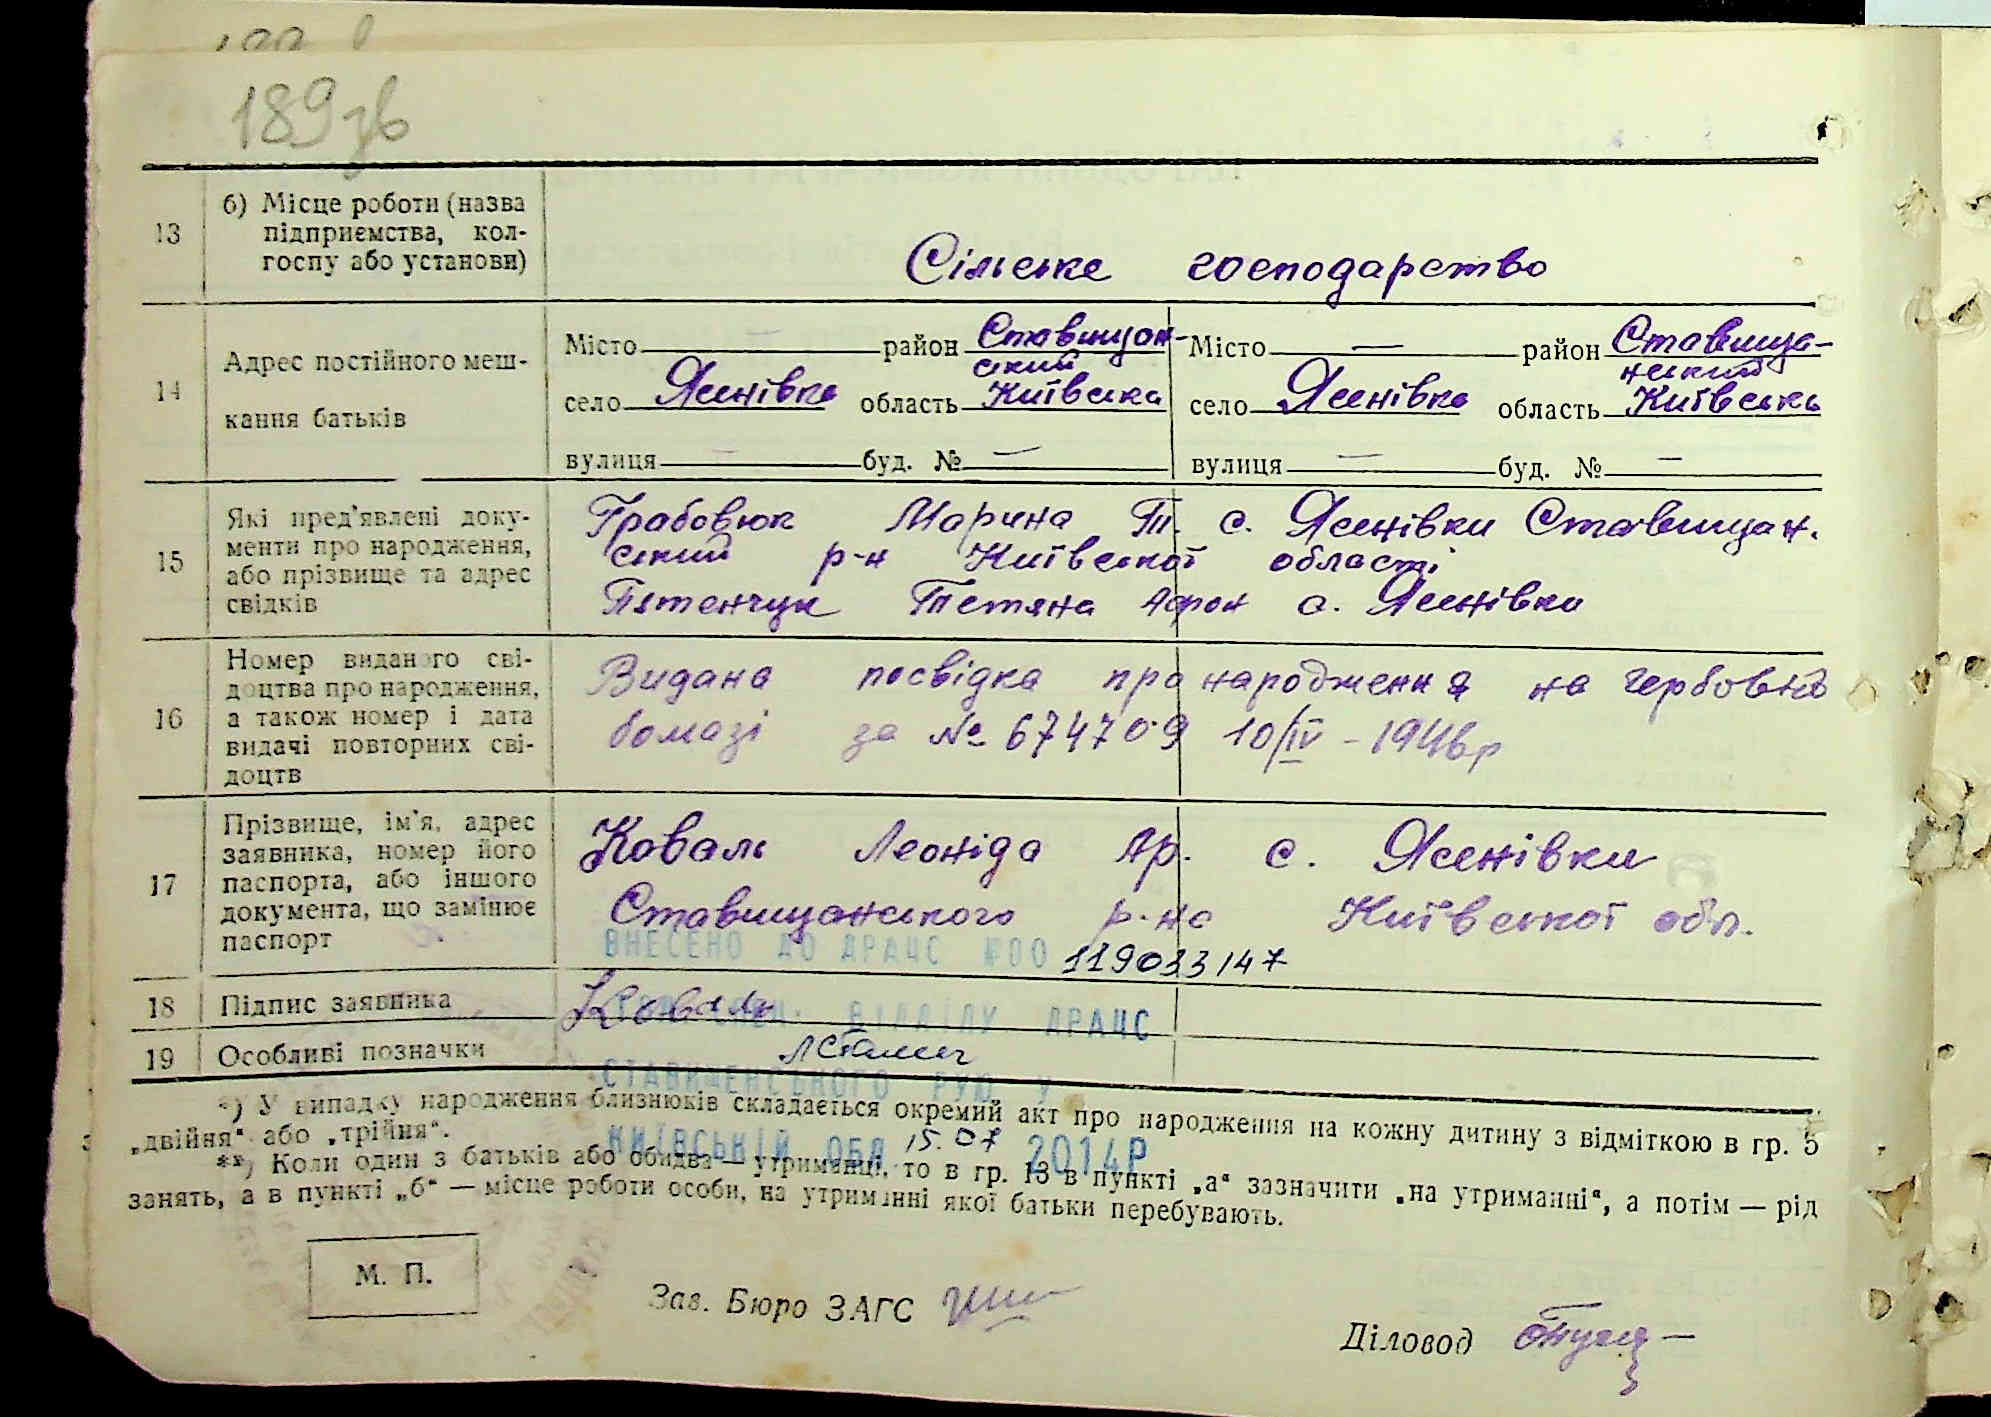 189зв
13
б) Місце роботи (назва
підприємства, кол-
госпу або установи)
Сільське господарство
14
Адрес постійного меш-
кання батьків
Місто — район Ставищан-
ський
село Ясенівка область Київська
вулиця — буд. № —
Місто — район Ставища-
нський
село Ясенівка область Київська
вулиця — буд. № —
15
Які пред'явлені доку-
менти про народження,
або прізвище та адрес
свідків
Грабовюк Марина Т. с. Ясенівки Ставищан.
ський р-н Київської області
Пятенчук Тетяна с. Ясенівки
16
Номер виданого сві-
доцтва про народження,
а також номер і дата
видачі повторних сві-
доцтв
Видана посвідка про народження на гербовій
бомазі за № 674709 10/IV - 1946р
17
Прізвище, ім'я, адрес
заявника, номер його
паспорта, або іншого
документа, що замінює
паспорт
Коваль Леоніда Ар. с. Ясенівки
Ставищанського р-на Київської обл.
ВНЕСЕНО ДО ДРАЦС №00 119033147
18
Підпис заявника
Коваль
ВІДДІЛУ ДРАЦС
19
Особливі позначки
СТАВИЩЕНСЬКОГО РУЮ У
КИЇВСЬКІЙ ОБЛ 15.07 2014Р
*) У випадку народження близнюків складається окремий акт про народження на кожну дитину з відміткою в гр. 5
„двійня“ або „трійня“.
**) Коли один з батьків або обидва — утриманці, то в гр. 13 в пункті „а“ зазначити „на утриманні“, а потім — рід
занять, а в пункті „б“ — місце роботи особи, на утриманні якої батьки перебувають.
М. П.
Зав. Бюро ЗАГС
Діловод